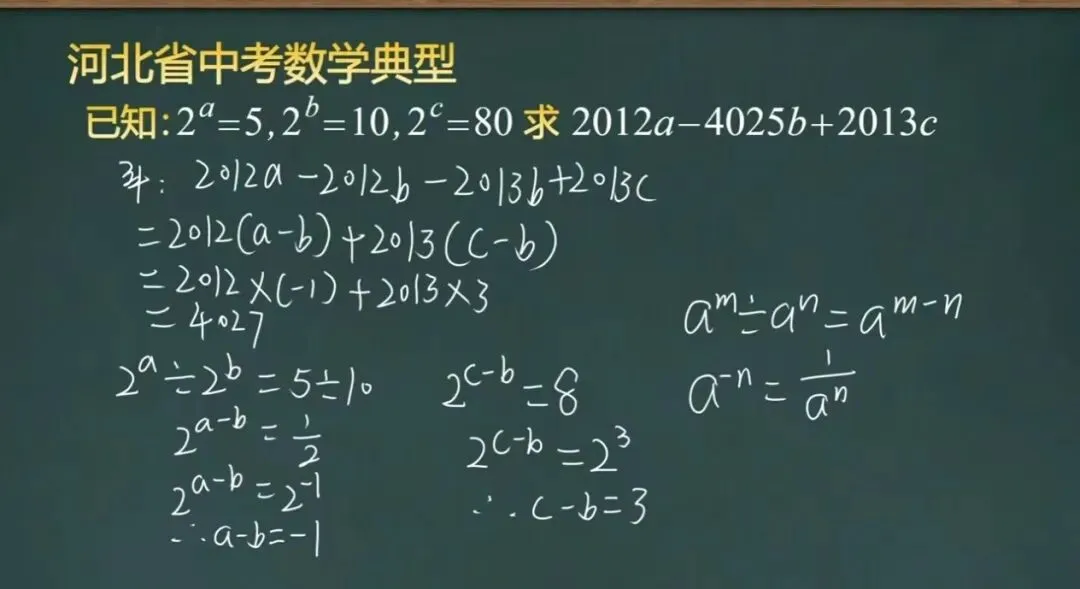 河北省中考数学典型
已知:2^a=5,2^b=10,2^c=80 求 2012a-4025b+2013c
2012a-2012b-2013b+2013c
=2012(a-b)+2013(c-b)
=2012×(-1)+2013×3
=4027
2^a÷2^b=5÷10
2^{a-b}=\frac{1}{2}
2^{a-b}=2^{-1}
∴a-b=-1
2^{c-b}=8
2^{c-b}=2^3
∴c-b=3
a^m÷a^n=a^{m-n}
a^{-n}=\frac{1}{a^n}